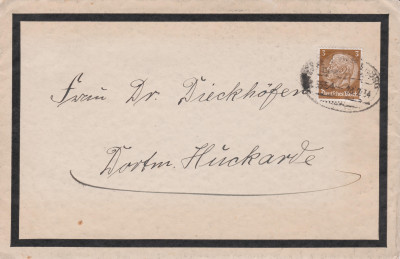 Frau Dr. Dieckhöfen
Dortm. Huckarde
3
Deutsches Reich